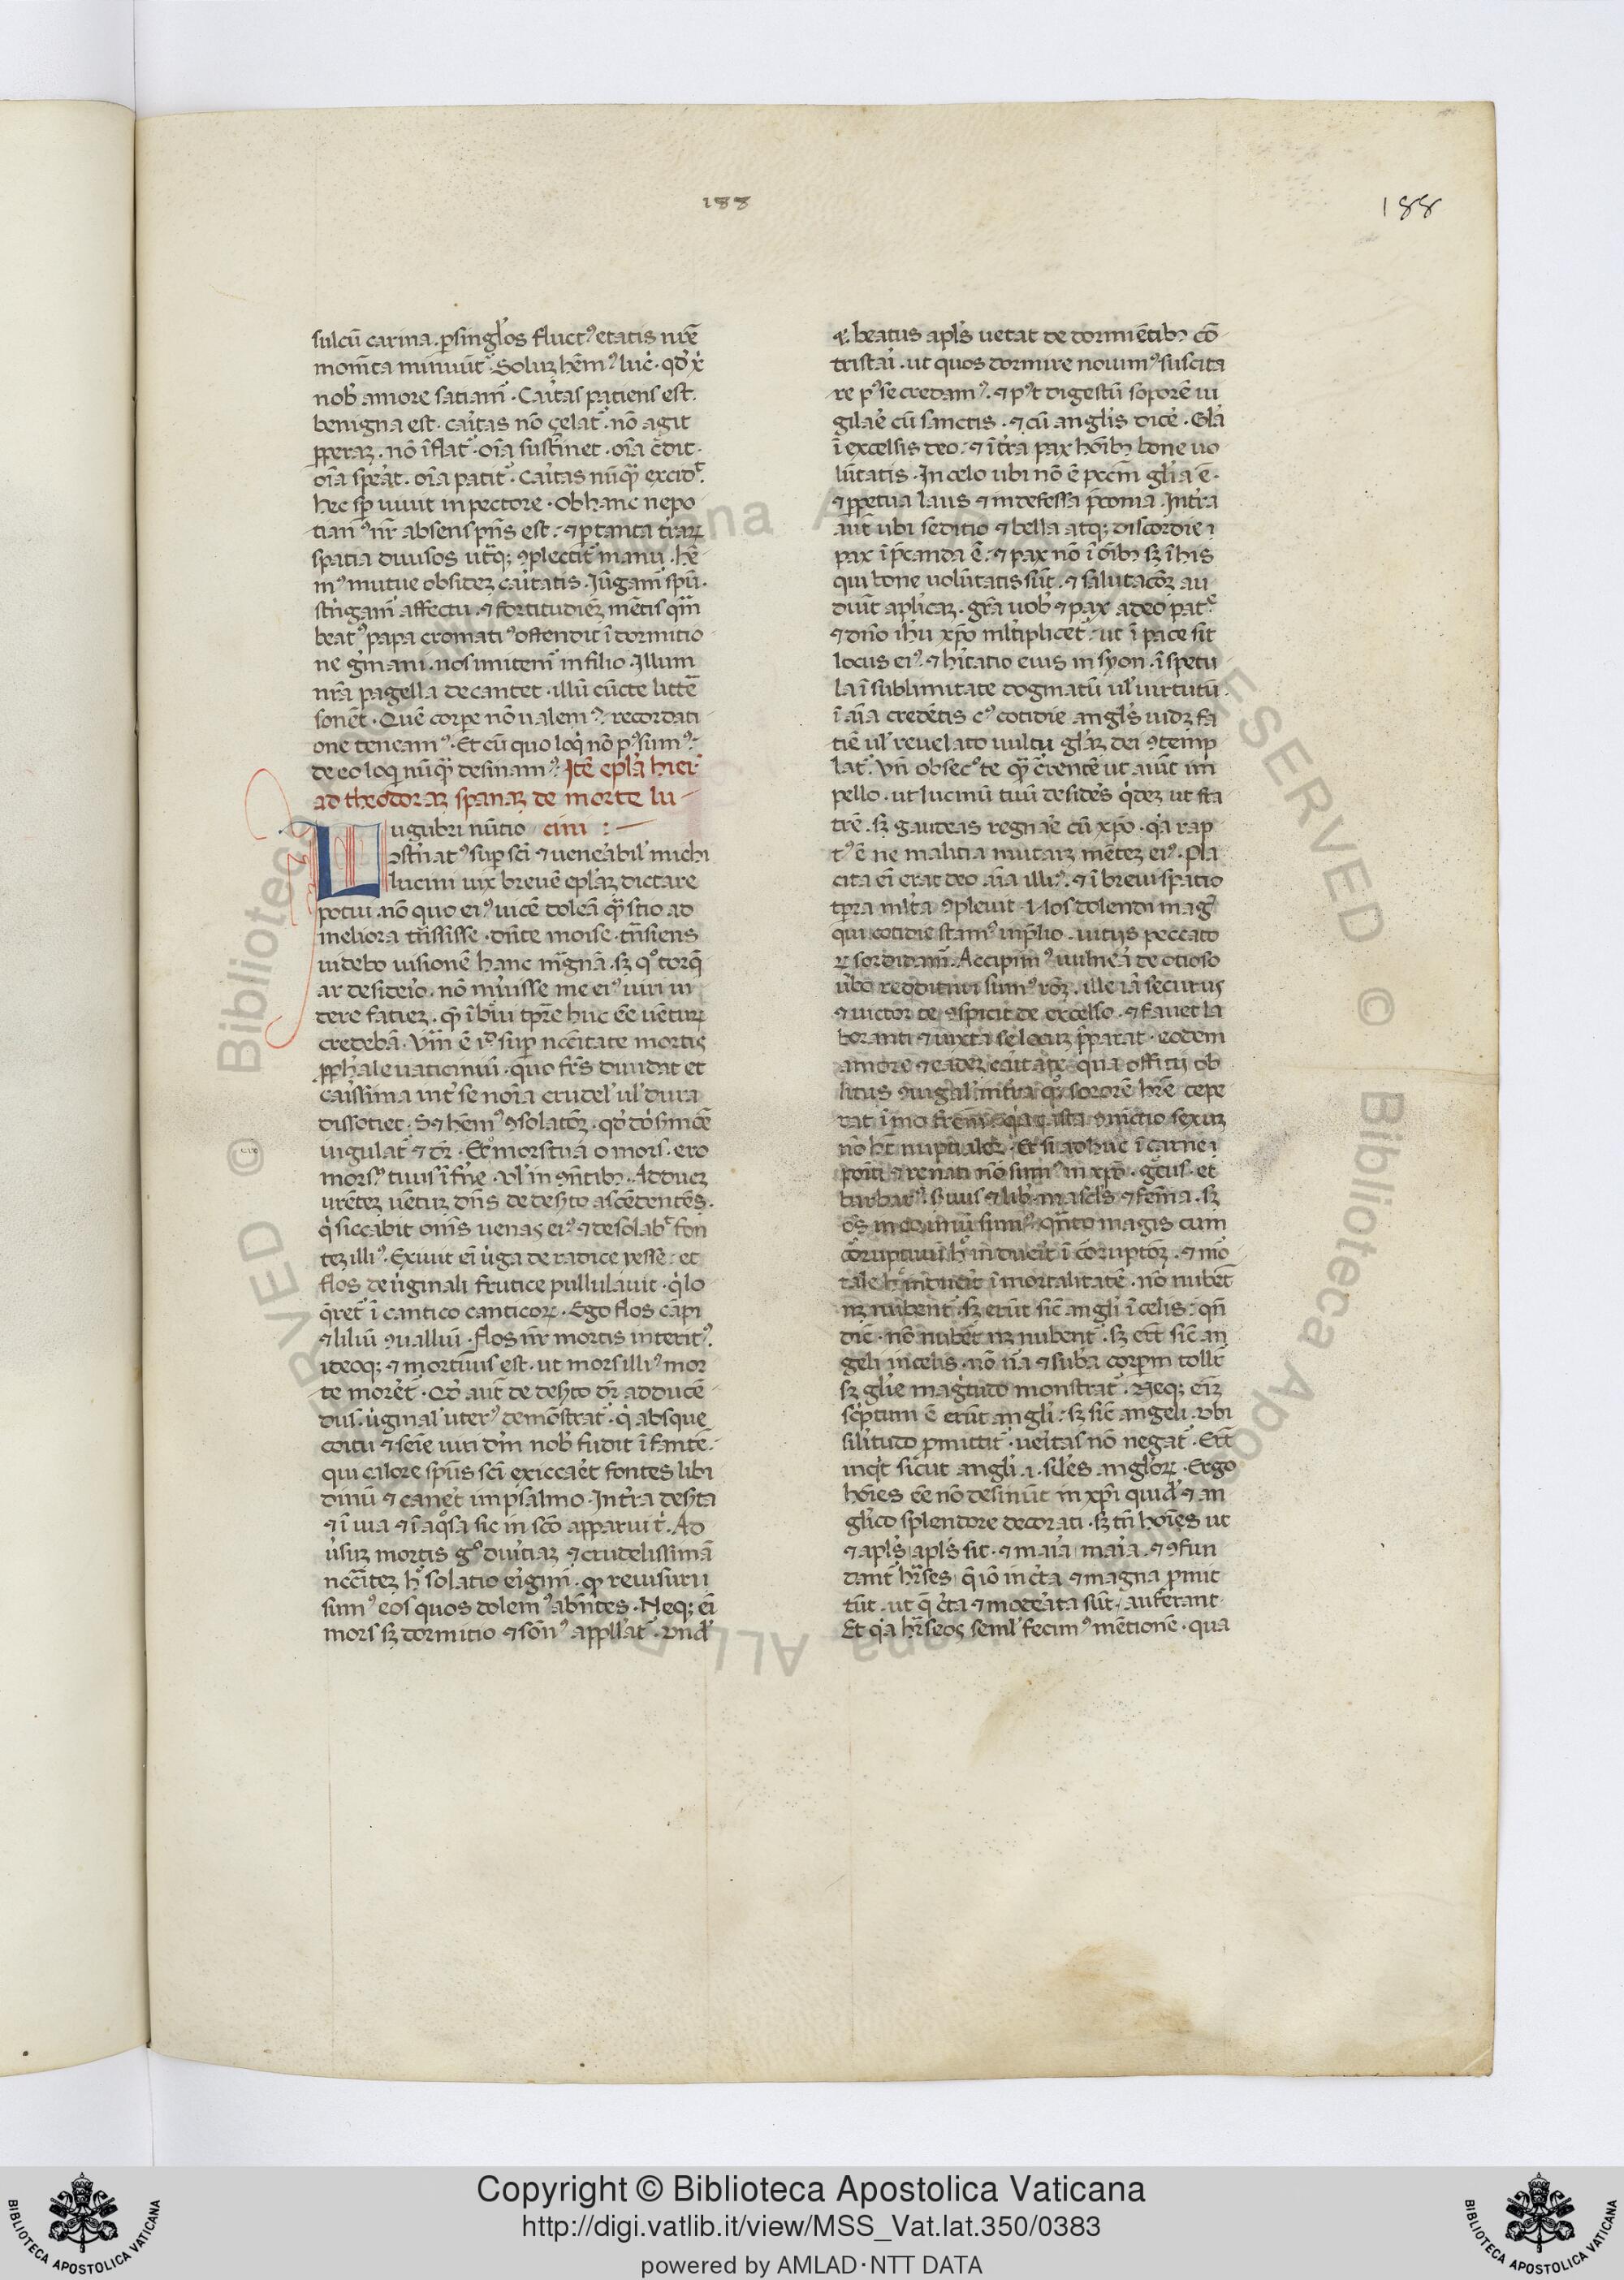 188
188
sulcū carina. ꝑ singl'os fluctꝰ etatis nrē
momēta minuūt. Soluꝫ hēmꝰ luc̄. qd' x̄
nob' amore satiam̄. Caritas patiens est.
benigna est. caritas nō çelat. nō agit
ꝑperaꝫ. nō īflat. oīa sustinet. oīa c̄dit.
oīa sperat. oīa patit. Caritas nūqȝ excidᵗ.
hec sp̄ uiuit in pectore. Ob hanc nepo
tianꝰ nr̄ absens pn̄s est. ⁊ ꝑ tanta t'raꝝ
spatia diuisos utqꝫ ꝯplectit manu. hē
mꝰ mutue obsideꝫ caritatis. Iūgam̄ spū.
stringam̄ affectu. ⁊ fortitudieꝫ mētis qm̄
beatꝰ papa cromatiꝰ ostendit ī dormitio
ne g'mani. nos imitem̄ in filio. Illum
nrā pagella decantet. illū cūcte littē
sonēt. Quē corpe nō ualemꝰ. recordati
one teneamꝰ. Et cū quo loqi nō pꝰsumꝰ.
de eo loqi nūqȝ desinamꝰ. Itē epla hier'
ad theodoraꝫ spanaꝫ de morte lu
Lugubri nūtio cini :
ꝯst'natꝰ sup sci ⁊ uen'abil' michi
lucini uix breuē eplaꝫ dictare
potui. nō quo eiꝰ uicē doleā qȝ scio ad
meliora tn̄sisse. dn̄te moise. tn̄siens
uidebo uisionē hanc mgnā. sꝫ qꝰ torq̄
ar desid'io. nō m'uisse me eiꝰ uiri ui
dere facieꝫ. qȝ ī b'ui tpre huc eē uētuꝝ
credebā. Vm̄ ē id' sup nccitate mortis
ꝓphale uaticiniū. quo frēs diuidat et
carissima int' se noīa crudel' ul' dura
dissociet. Sꝫ ⁊ hēmꝰ ꝯsolatōꝫ. qd' dn̄i s'moē
iugulat ⁊ dr̄. Ero mors tua o mors. ero
morsꝰ tuus īf'ne. Vl' in ꝯn̄tibꝫ. Adducꝫ
urēteꝫ uētuꝫ dn̄s de des'to ascēdentēs.
q̇ siccabit om̄s uenas eiꝰ ⁊ desolabᵗ fon
teꝫ illiꝰ. Exiuit eī u'ga de radice yesse. et
flos de u'ginali frutice pullulauit. q̇ lo
q̄ret ī cantico canticoꝝ. Ego flos cāpi
⁊ liliū ꝯualliū. flos nr̄ mortis interitꝰ.
ideoqꝫ ⁊ mortuus est. ut mors illiꝰ mor
te morēt. Qd' aut de des'to dr̄ adducē
dus. u'ginal' uterꝰ demōstrat. q̇ absque
coitu ⁊ seīe uiri dm̄ nob' fudit īfantē.
qui calore spūs sci exiccaret fontes libi
dinū ⁊ caneret in psalmo. In t'ra des'ta
⁊ ī uia ⁊ ī aqosa sic in sco apparui t'. Ad
u'suꝫ mortis gº duritiaꝫ ⁊ crudelissimā
nccīteꝫ hº solatio erigim̄. qȝ reuisuri
sumꝰ eos quos dolemꝰ abn̄tes. Neqꝫ eī
mors sꝫ dormitio ⁊ sōnꝰ appllat. vnd'
⁊ beatus apls uetat de dormiētibꝫ cō
tristari. ut quos dormire nouimꝰ suscita
re pꝰse credamꝰ. ⁊ pꝰt digestū soporē ui
gilare cū sanctis. ⁊ cū anglis dicē. Glā
ī excelsis deo. ⁊ ī t'ra pax hoībꝫ bone uo
lūtatis. In celo ubi nō ē pccm̄ glia ē.
⁊ ꝑpetua laus ⁊ indefessa p̄conia. In t'ra
aut ubi seditio ⁊ bella atqꝫ discordie ı
pax īp̄canda ē. ⁊ pax nō ī oībꝫ sꝫ ī his
qui bone uolūtatis sūt. ⁊ salutacōꝫ au
diūt aplicaꝫ. grā uob' ⁊ pax a deo patᵉ
⁊ dn̄o ihu xp̄o mltiplicet. ut ī pace sit
locus eiꝰ. ⁊ hitatio eius in syon. ī specu
la ī sublimitate dogmatū ul' uirtutū.
ī aīa credētis cꝰ cotidie angl's uidꝫ fa
tiē ul' reuelato uultu gl'aꝫ dei ꝯtemp
lat. Vn̄ obsecꝰ te qȝ c̄rentē ut aiūt im
pello. ut lucinū tuū desides q̇deꝫ ut fra
trē. sꝫ gaudeas regnare cū xp̄o. q̇a rap
tꝰ ē ne malitia mutaꝫ mēteꝫ eiꝰ. Pla
cita eī erat deo aīa illiꝰ. ⁊ ī breui spatio
tpra mlta ꝯpleuit. Nos dolendi magi'
qui cotidie stamꝰ in p̄lio. uitiis peccato
ꝝ sordidam̄. Accipimꝰ uuln'a ı de otioso
u'bo reddituri sumꝰ rōꝫ. ille iā securus
⁊ uictor te ꝯspicit de excelso. ⁊ fauet la
boranti ⁊ iuxta se locuꝫ p̄parat. eodem
amore ⁊ eadeꝫ caritate qua offitij ob
litus ꝯiugal' in t'ra qȝ sororē hr̄e cepe
rat imo frēm. q̇a casta ꝯiūctio sexuꝫ
nō ht nuptialeꝫ. Et si adhuc ī carne ı
poīti ⁊ renati nō sumꝰ in xp̄o. gcus. et
barbarꝰ. s'uus ⁊ lib' mascl's ⁊ femīa. sꝫ
ōs in eo unū sumꝰ. qn̄to magis cum
corruptiuū hº induerit ī corruptōꝫ. ⁊ mo
tale hº induerit īmortalitatē. nō nubēt
nꝫ nubent. sꝫ erūt sic angli ī celis. qn̄
dic̄. nō nubēt nꝫ nubent. sꝫ ert sic an
geli in celis. nō nā ⁊ suba corpm tollit
sꝫ gl'ie magitudo monstrat. Neqꝫ eīꝫ
scptum ē erūt angli. sꝫ sic angeli. vbi
silitudo ꝓmittit. ueritas nō negat. Ert
inqit sicut angli. i. siles angloꝝ. Ergo
hoīes eē nō desinūt in xp̄i quid' ⁊ an
glico splendore decorati. sꝫ tn̄ hoīes ut
⁊ apls apls sit. ⁊ maria maria. ⁊ ꝯfun
dant hr̄ses q̄ iō incta ⁊ magna ꝓmit
tūt. ut q̄ c̄ta ⁊ moderata sūt, auferant.
Et q̇a hr̄seos semel fecimꝰ mētionē. qua
Copyright © Biblioteca Apostolica Vaticana
http://digi.vatlib.it/view/MSS_Vat.lat.350/0383
powered by AMLAD·NTT DATA
BIBLIOTECA APOSTOLICA VATICANA
BIBLIOTECA APOSTOLICA VATICANA